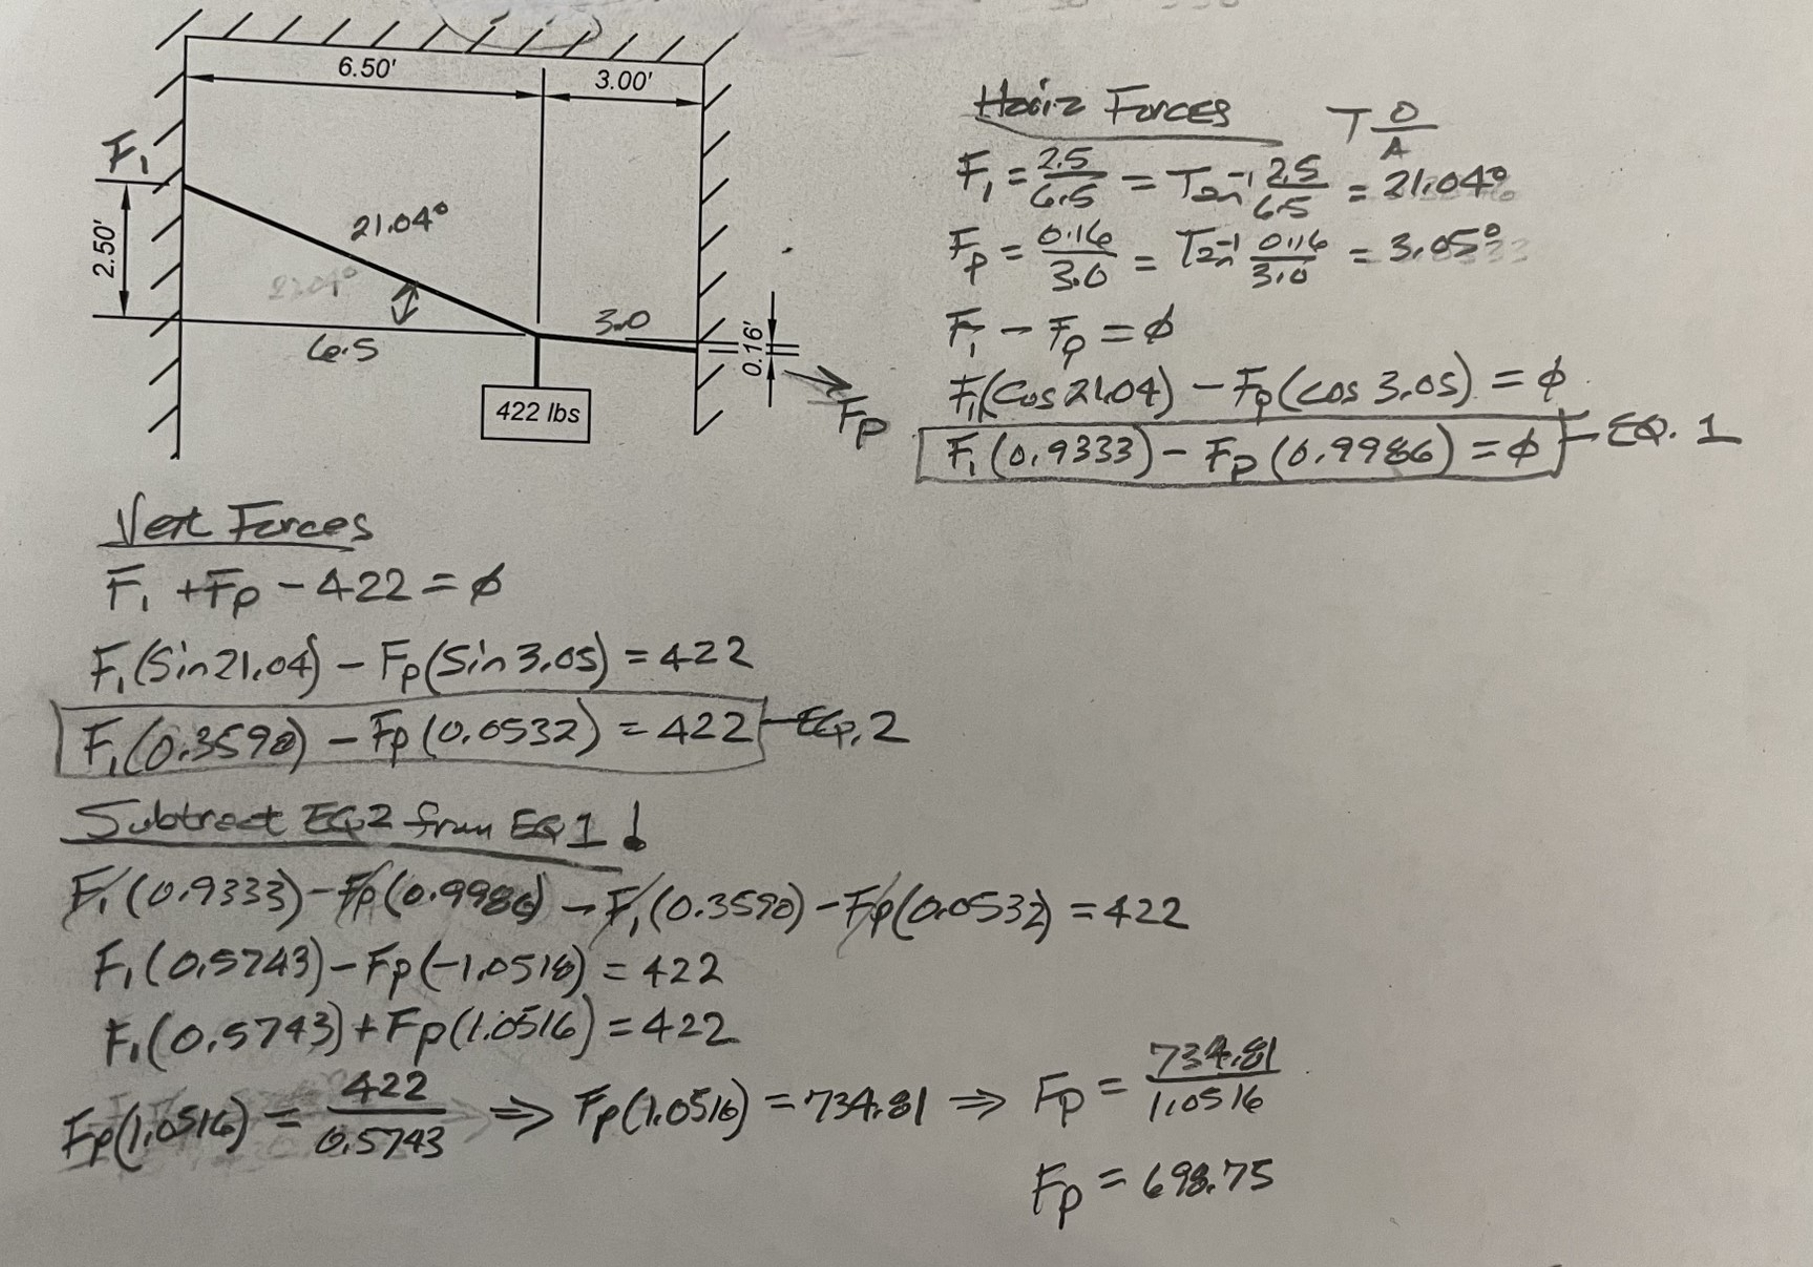 6.50'
3.00'
F₁
2.50'
21.04°
21.04°
6.5
3.0
0.16'
422 lbs
Fp
Horiz Forces T O/A
F₁ = 2.5/6.5 = Tan⁻¹ 2.5/6.5 = 21.04°
Fp = 0.16/3.0 = Tan⁻¹ 0.16/3.0 = 3.05°
F₁ - Fp = ϕ
F₁(Cos 21.04) - Fp(cos 3.05) = ϕ
F₁(0.9333) - Fp(0.9986) = ϕ EQ. 1
Vert Forces
F₁ + Fp - 422 = ϕ
F₁(Sin 21.04) - Fp(Sin 3.05) = 422
F₁(0.3590) - Fp(0.0532) = 422 EQ. 2
Subtract EQ2 from EQ1!
F₁(0.9333) - Fp(0.9986) - F₁(0.3590) - Fp(0.0532) = 422
F₁(0.5743) - Fp(-1.0518) = 422
F₁(0.5743) + Fp(1.0516) = 422
Fp(1.0516) = 422/0.5743 ⇒ Fp(1.0516) = 734.81 ⇒ Fp = 734.81/1.0516
Fp = 698.75